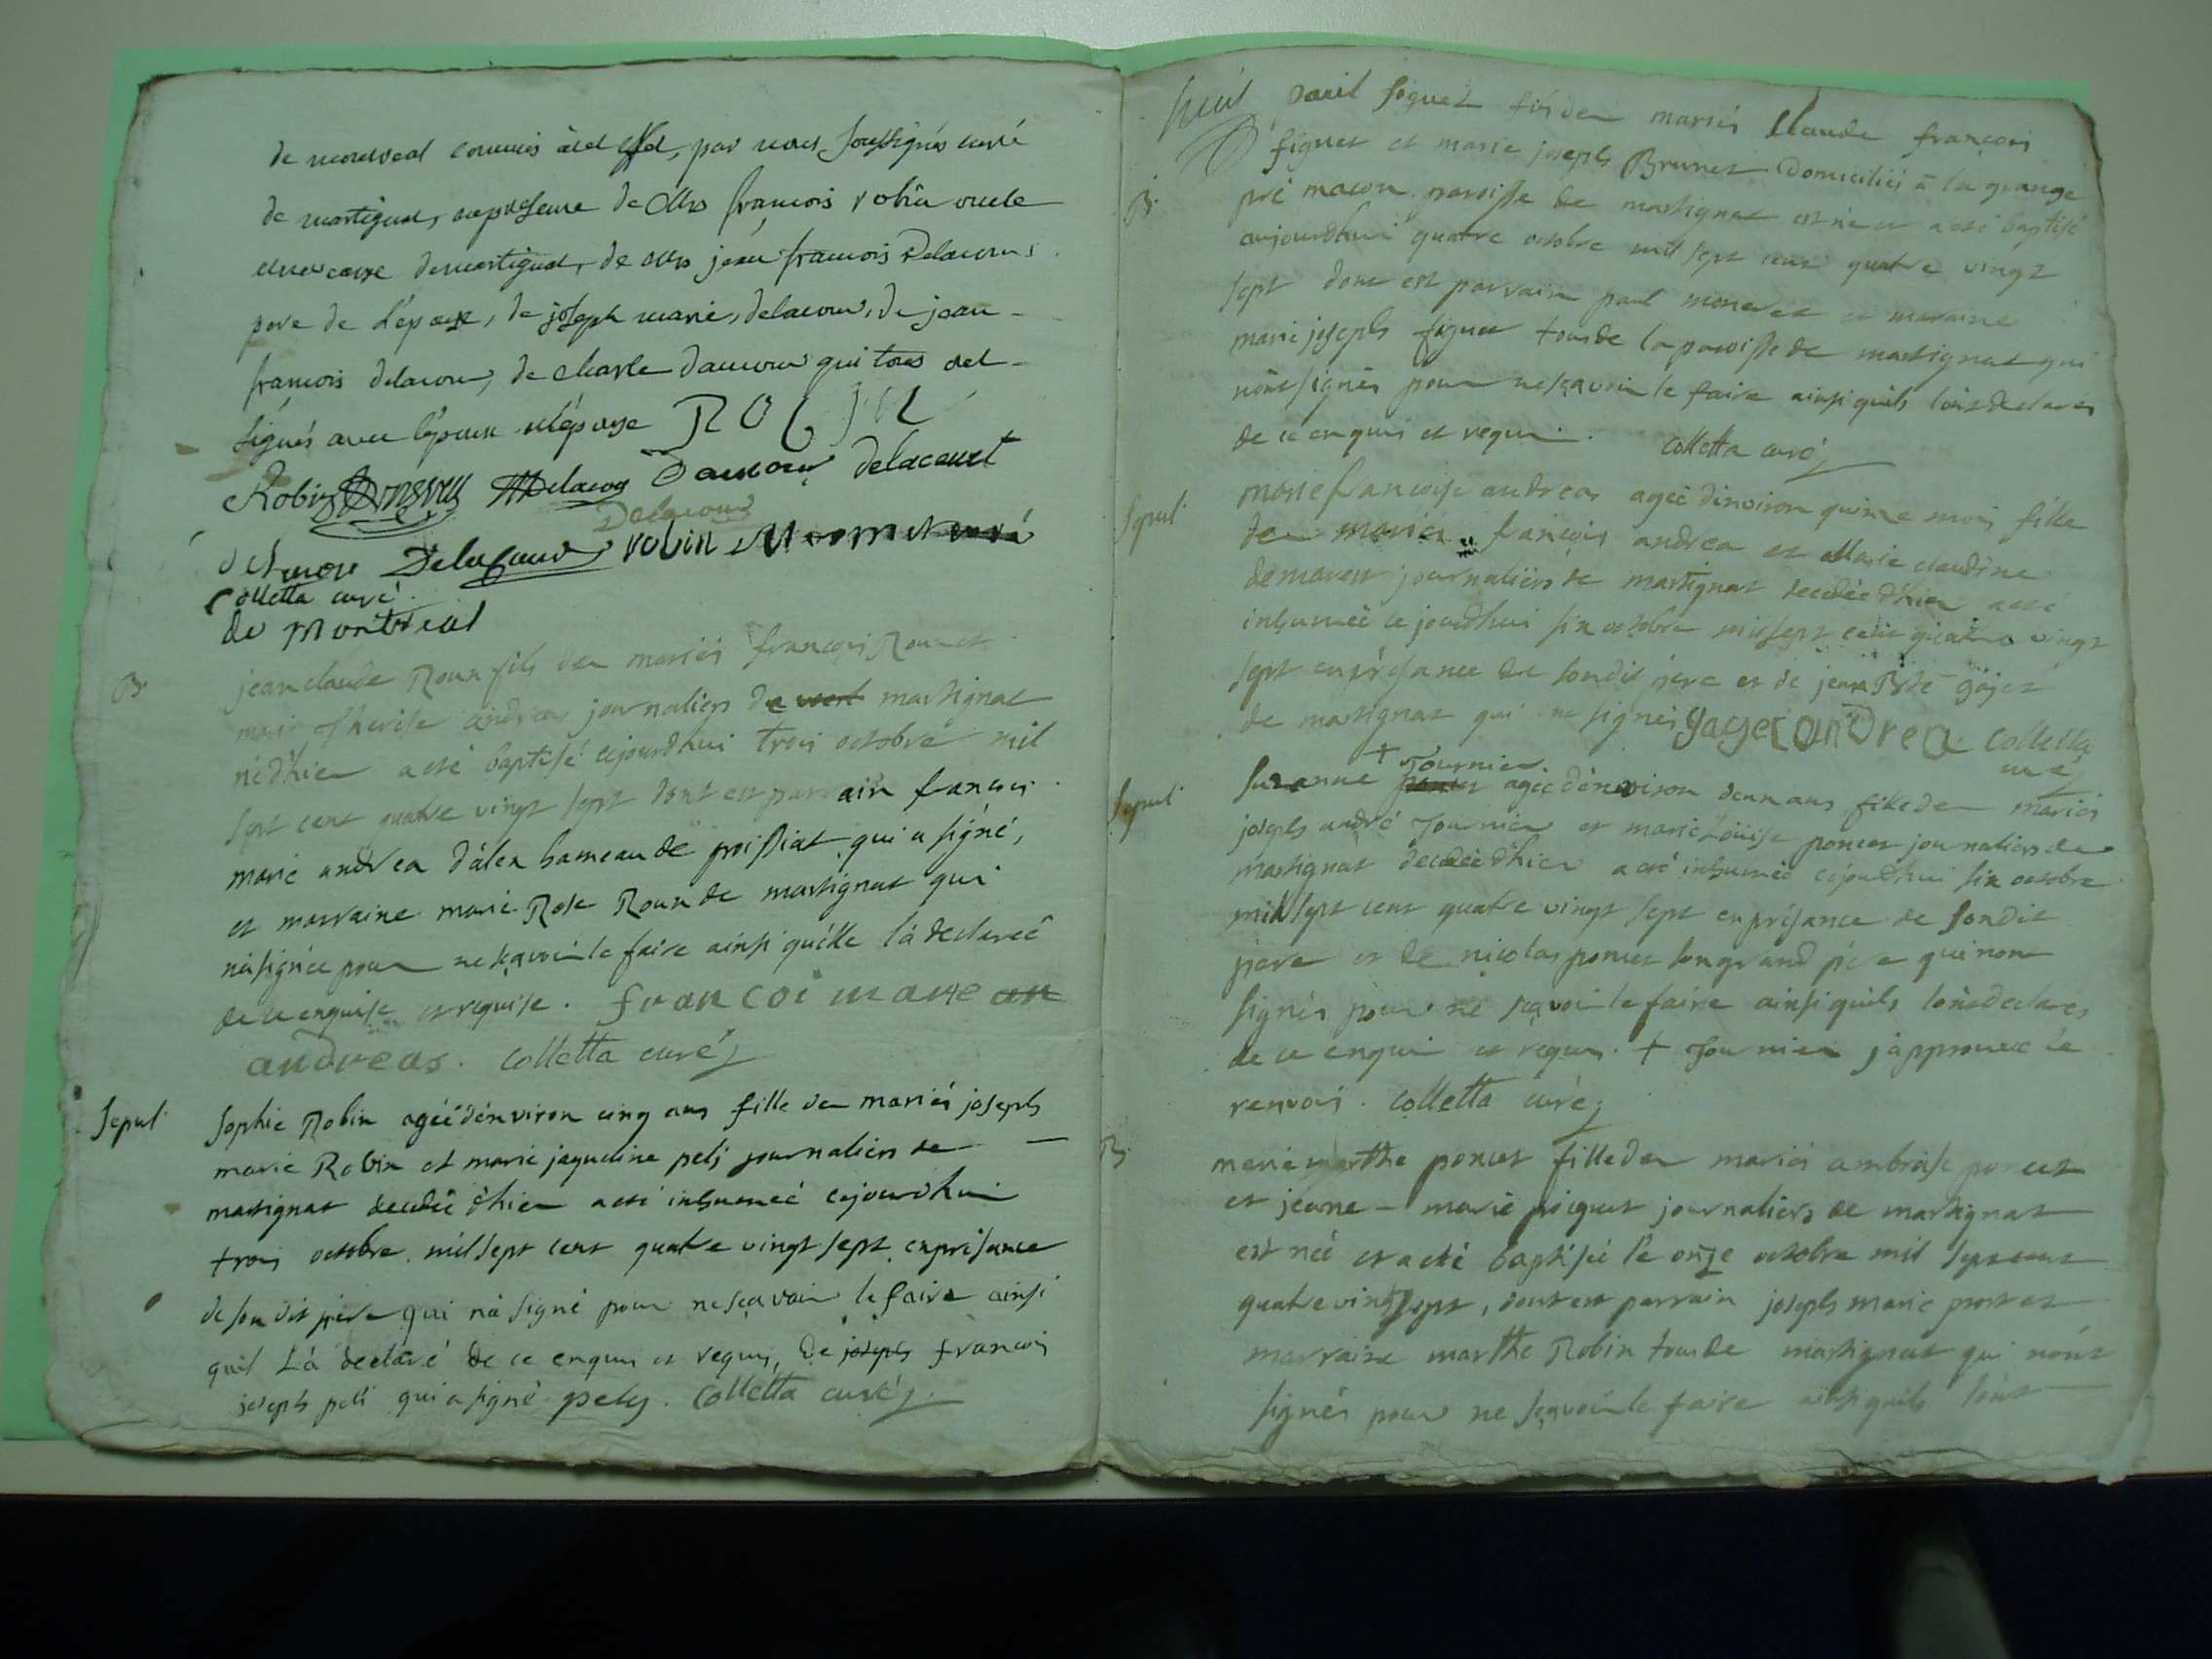 de montreal commis à cet effet, par nous soussignés curé
de martignat, en presence de Mrs françois robin oncle
de martignat, de Mrs jean françois Delacour
pere de l'epouse, de joseph marie, delacour, de jean
françois delacour, de charle daucour qui tous ont
signés avec l'epoux et l'epouse ROBIN
Robin Delacour Daucour delacourt
Delacour
Delacour robin
Colletta curé.
de Montreal
B.
jean claude Roux fils des mariés françois Roux et
marie therese andreas journaliers de martignat
né d'hier a eté baptisé cejourdhui trois octobre mil
sept cent quatre vingt sept dont est parrain françois
marie andrea d'alex hameau de groissiat qui a signé,
et marraine marie Rose Roux de martignat qui
n'a signée pour ne sçavoir le faire ainsi qu'elle l'a declareé
de ce enquise et requise. francoi marie an
andreas. Colletta curé
Sepul
Sophie Robin ageé d'environ cinq ans fille des mariés joseph
marie Robin et marie jaqueline peli journaliers de
martignat decedeé d'hier a eté inhumeé cejourdhui
trois octobre mil sept cent quatre vingt sept en présance
de son dit père qui n'a signé pour ne sçavoir le faire ainsi
quil l'a declaré de ce enquis et requis, de joseph françois
joseph peli qui a signé pely. Colletta curé.
huit
B.
paul figuet fils des mariés Claude françois
figuet et marie joseph Brunet Domiciliés à la grange
pré macon paroisse de martignat est né et a eté baptisé
aujourdhui quatre octobre mil sept cent quatre vingt
sept dont est parrain paul moneret et maraine
marie joseph figuet tous de la paroisse de martignat qui
n'ont signés pour ne sçavoir le faire ainsi quils l'ont declarés
de ce enquis et requis. Colletta curé
Sepul
marie françoise andreas ageé d'environ quinze mois fille
des mariés françois andrea et Marie claudine
demaret journaliers de martignat decedeé d'hier a eté
inhumeé ce jourdhui six octobre mil sept cent quatre vingt
sept en présance de son dit pere et de jean Bte gojet
de martignat qui ont signés gaget andrea Colletta
curé
Sepul
+ Tournier
Suzanne poncet ageé d'environ deux ans fille des mariés
joseph andré Tournier et marie Loüise poncet journaliers de
martignat decedeé d'hier a eté inhumeé cejourdhui six octobre
mil sept cent quatre vingt sept en présance de son dit
pere et de nicolas poncet son grand pére qui n'ont
signés pour ne sçavoir le faire ainsi quils l'ont declarés
de ce enquis et requis. + Tournier j'approuve le
renvois. Colletta curé
B.
marie marthe poncet fille des mariés ambroise poncet
et jeanne - marie poiguet journaliers de martignat
est neé et a eté baptiseé le onze octobre mil sept cent
quatre vingt sept, dont est parrain joseph marie prost et
marraine marthe Robin tous de martignat qui n'ont
signés pour ne sçavoir le faire ainsi quils l'ont